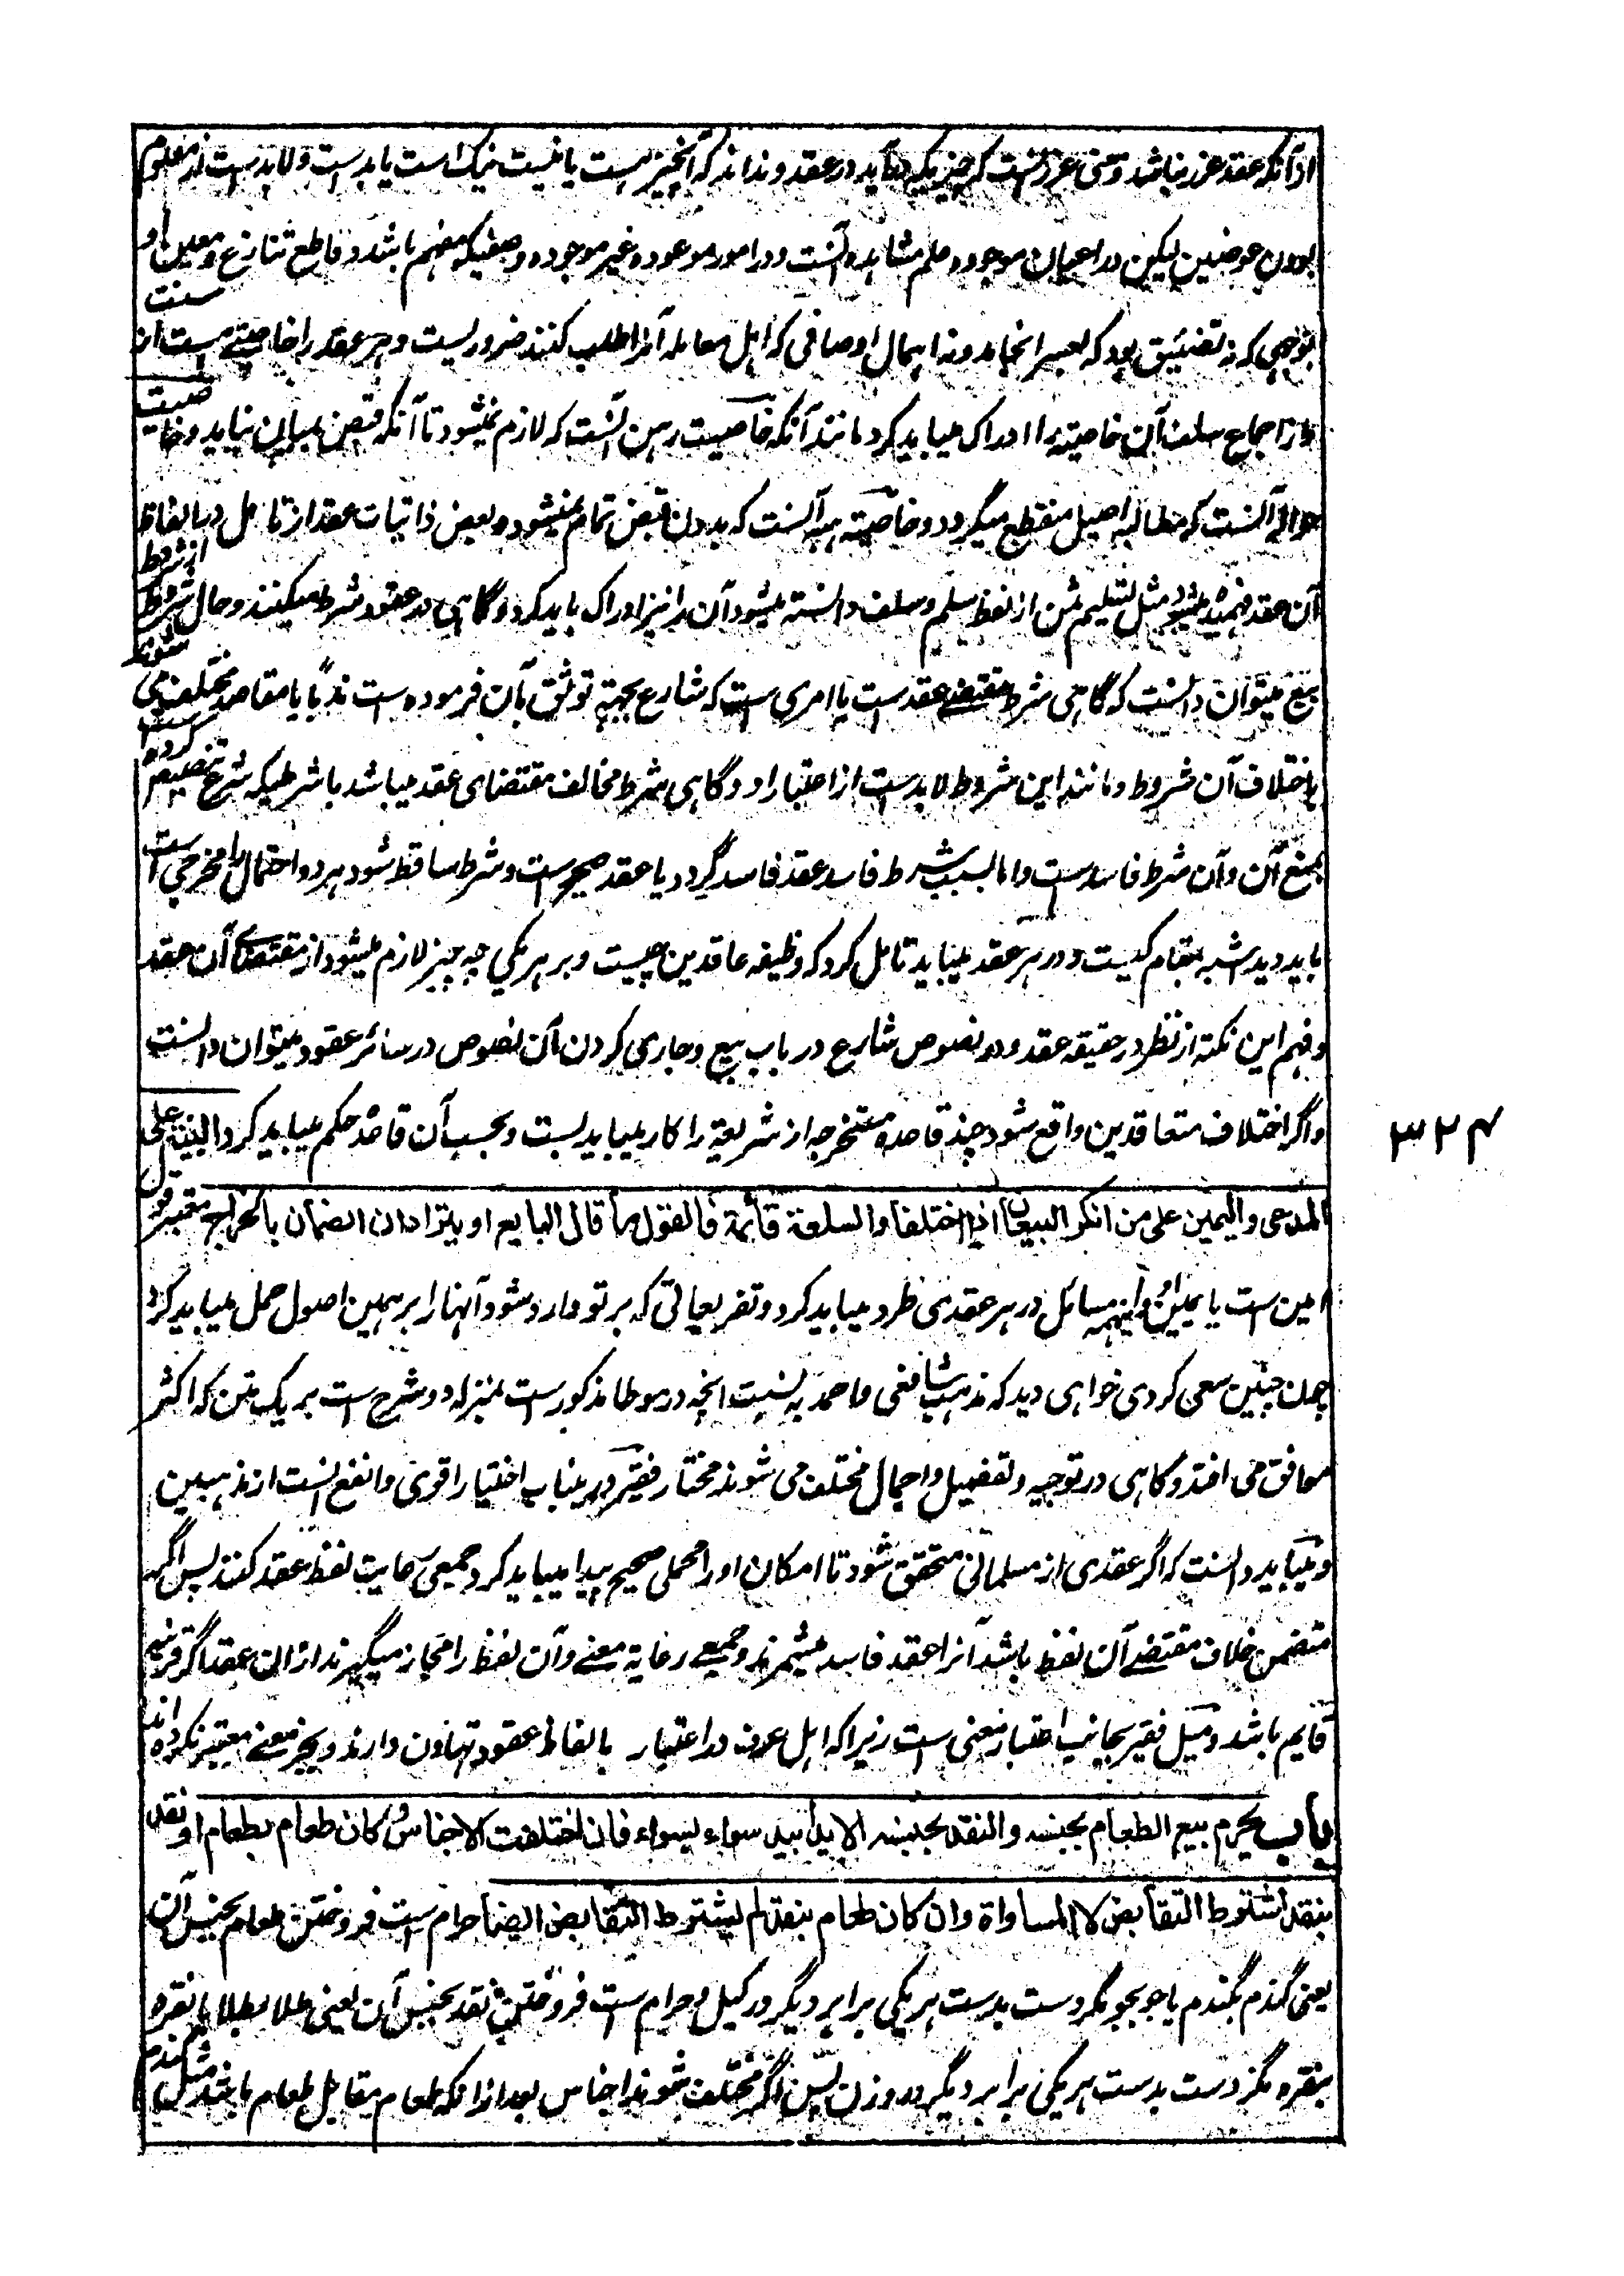 از آنکه عقد غرر نباشد و معنی غرر آنست که چیزیکه در آید در عقد و نداند که آنچیز هست یا نیست نیک است یا بد است و لابد است از معلوم
بودن عوضین لیکن در اعیان موجوده علم مشاهده آنست و در امور موعوده غیر موجوده وصفیکه مفهم باشد و قاطع تنازع و معین او
بوجهی که نه تضییق بود که بعسر انجامد و نه اهمال اوصافی که اهل معامله آنرا طلب کنند ضروریست و هر عقد را خاصیتی هست از سنت
و از اجماع سلف آن خاصیته را ادراک میباید کرد مانند آنکه خاصیت رهن آنست که لازم نمیشود تا آنکه قبض بمیان نیاید و خاصیت
حواله آنست که مطالبه اصیل منقطع میگردد و خاصیته هبه آنست که بدون قبض تمام نمیشود و بعض ذاتیات عقد از تامل در الفاظ
آن عقد فهمیده میشود مثل تسلیم ثمن از لفظ سلم و سلف دانسته میشود آن را نیز ادراک باید کرد و گاهی در عقود شرط میکنند و حال شروط از شروط
بیع میتوان دانست که گاهی شرط مقتضی عقد ست یا امری ست که شارع بجهة توثق بآن فرموده است ندباً یا مقاصد مختلف می شوند
باختلاف آن شروط و مانند این شروط لابد ست از اعتبار او و گاهی شرط مخالف مقتضای عقد میباشد یا شرطیکه شرع تنصیص کرده است
بمنع آن و آن شرط فاسد ست و اما بسبب شرط فاسد عقد فاسد گردد یا عقد صحیح ست و شرط ساقط شود هر دو احتمال را مخرجی است
باید دید اشبه بمقام کدیست و در هر عقد میباید تامل کرد که وظیفه عاقدین چیست و بر هر یکی چه چیز لازم میشود از مقتضای آن عقد
و فهم این نکته از نظر در حقیقه عقد و در نصوص شارع در باب بیع و جاری کردن آن نصوص در سائر عقود میتوان دانست
و اگر اختلاف متعاقدین واقع شود چند قاعده مستخرجه از شریعة را کار میباید بست و بحسب آن قاعده حکم میباید کرد البینة علی
المدعی والیمین علی من انکر البیعان اذا اختلفا والسلعة قائمة فالقول ما قال البایع او یترادان الضمان بالخراج معتبر قول
امین ست با یمین او و اینهمه مسائل در هر عقدی طرد میباید کرد و تفریعاتی که بر تو وارد شود آنها را بر همین اصول حمل میباید کرد
چون چنین سعی کردی خواهی دید که مذهب شافعی و احمد به نسبت انچه در موطا مذکور ست بمنزله دو شرح ست بر یک متن که اکثر
موافق می افتد و گاهی در توجیه و تفصیل و اجمال مختلف می شوند مختار فقیر درین باب اختیار اقوی و انفع انست از مذهبین
و میباید دانست که اگر عقدی از مسلمانی متحقق شود تا امکان او را محملی صحیح پیدا میباید کرد جمیعی رعایت لفظ عقد کنند پس اگر
متضمن خلاف مقتضی آن لفظ باشد آنرا عقد فاسد میشمرند و جمیعی رعایة معنی و آن لفظ را مجاز میگیرند از ان عقد اگر قرینه
قایم باشد و میل فقیر بجانب اعتبار معنی ست زیرا که اهل عرف در اعتبار بالفاظ عقود تهاون دارند و بجز معنی معتبر نکرده اند
باب یحرم بیع الطعام بجنسه والنقد بجنسه الا یدا بید سواء بسواء فان اختلفت الاجناس و کان طعام بطعام او نقد
بنقد اشترط التقابض لا المساواة وان کان طعام بنقد لم یشترط التقابض ایضا حرام ست فروختن طعام بجنس آن
یعنی گندم بگندم یا جو بجو مگر دست بدست هر یکی برابر دیگر در کیل و حرام ست فروختن نقد بجنس آن یعنی طلا بطلا یا نقره
بنقره مگر دست بدست هر یکی برابر دیگر در وزن پس اگر مختلف شوند اجناس بعد از انکه طعام مقابل طعام باشد مثل گندم
۳۲۴